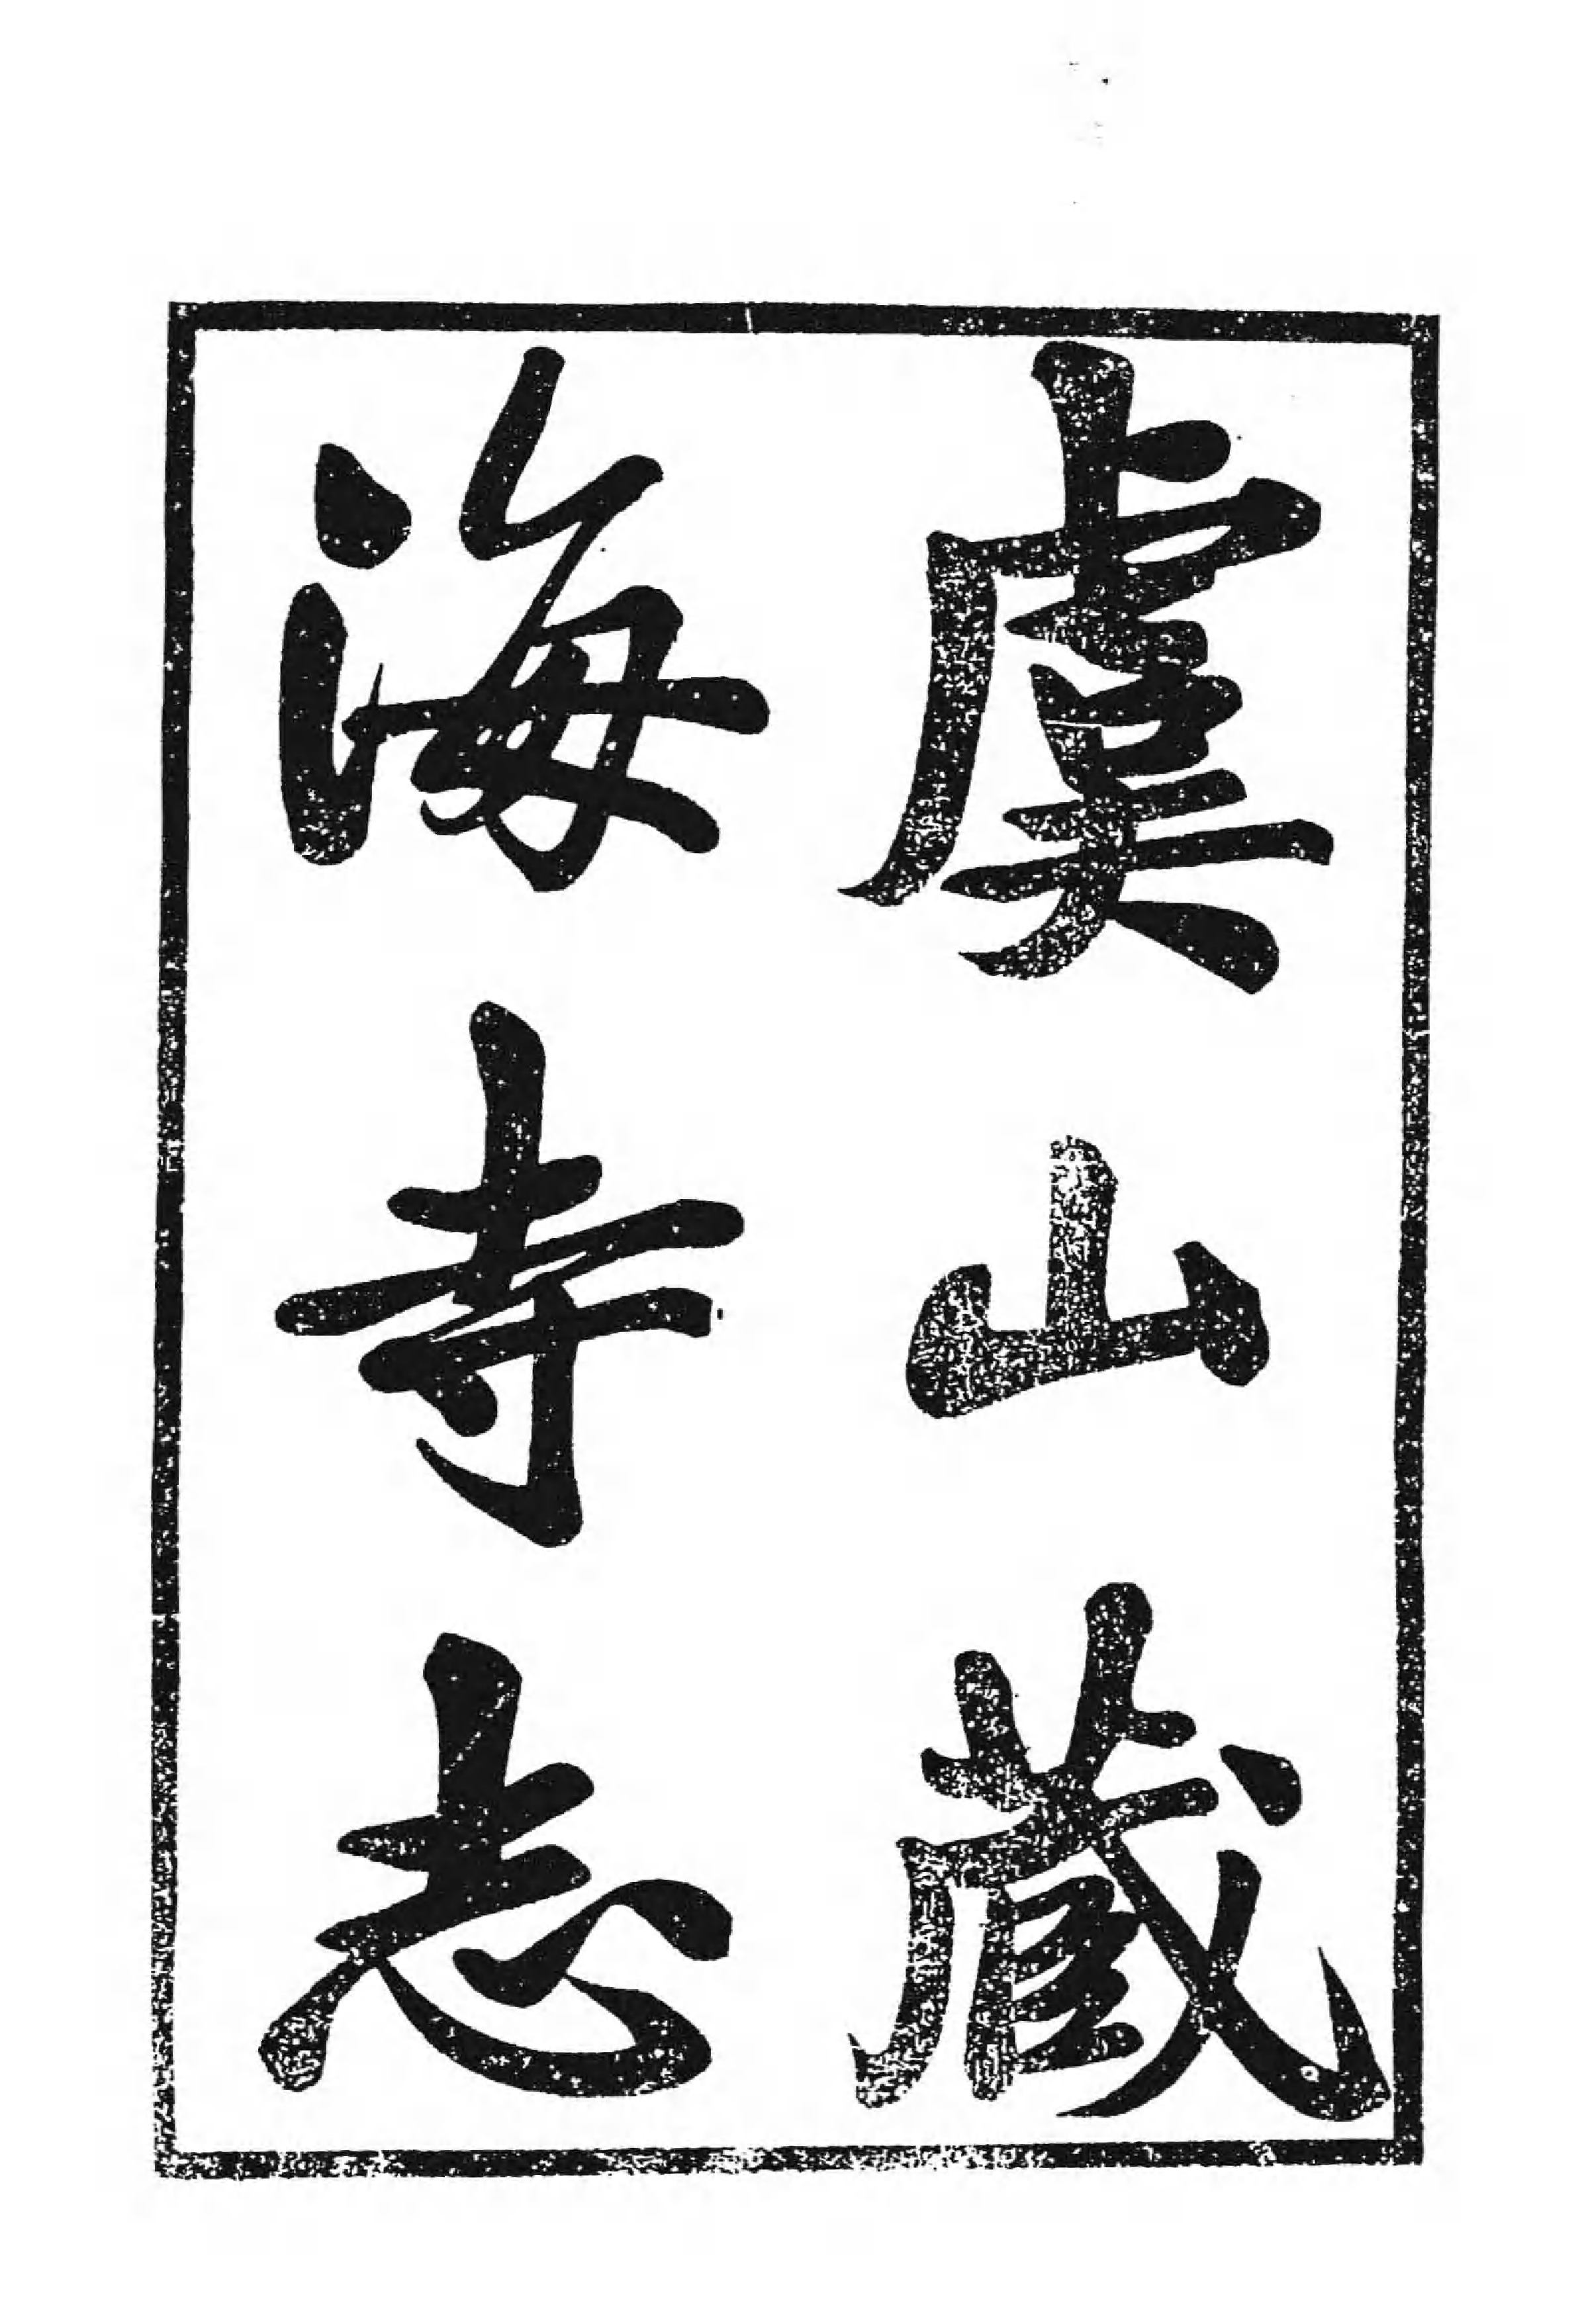 虞山藏
海寺志